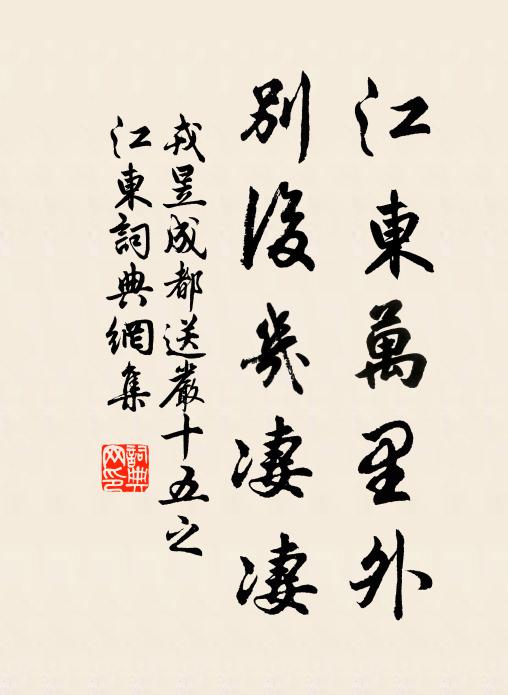 江東萬里外
別後幾凄凄
戎昱成都送嚴十五之
江東詞典網集
詞典網印